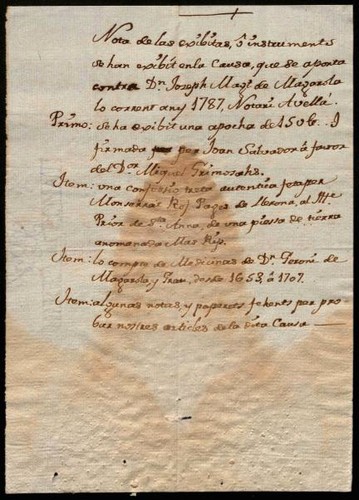 Nota de las exibitas, ò instruments
se han exibit en la Causa, que se aporta
contra Dn. Joseph Magi. de Magarola
lo corrent any 1787. Notari Avellá.
Primo: se ha exibit una apocha de 150 
firmada per Joan Salvador â favor
del Dor. Miquel Grimosachs.
Item: una Confessio treta autentica feta per
Monserrat Roj Pages de
Prior de Sta. Anna, de una pessa de terra
anomenada Mas Roj.
Item: lo compte de Medicinas de Dn. Geroni de
Magarola, y Grau, desde 1653, â 1707.
Item: algunas notas, y papérets fahents per pro-
bar nostres articles de la dita Causa